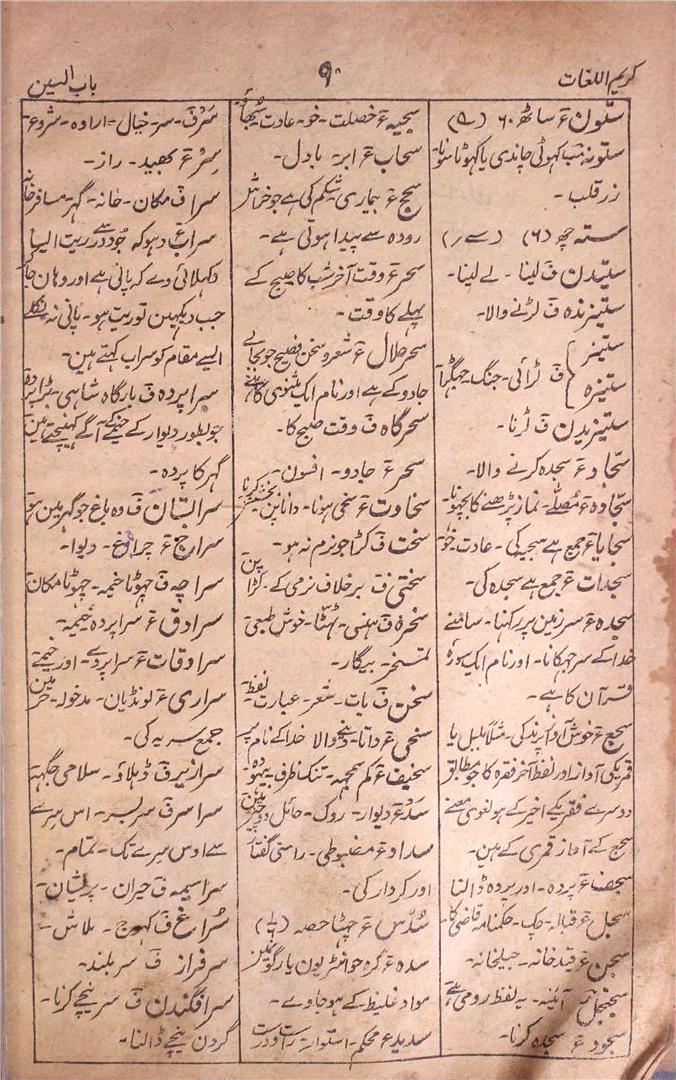 کریم اللغات
۹۰
باب السین
ستون ع ساٹھ ۶۰ (۹)
ستونہ تب کہوٹی چاندی یا کہوٹا سونا۔
زر قلب۔
ستہ چھ (۶)
ستیدن ف لینا۔ لے لینا۔
ستیزندہ ف لڑنے والا۔
ستیز
ستیزہ
ف لڑائی۔ جنگ۔ جہگڑا
ستیزیدن ف لڑنا۔
سجاد ع سجدہ کرنے والا۔
سجادہ ع مصلے۔ نماز پڑھنے کا بچہونا۔
سجایا ع جمع ہے سجیہ کی۔ عادت۔ خو
سجدات ع جمع ہے سجدہ کی۔
سجدہ ع سر زمین پر رکہنا۔ سامنے
خدا کے سر جہکانا۔ اور نام ایک سورہ
قرآن کا ہے۔
سجع ع خوش آواز پرند کی۔ مثلاً بلبل یا
قمری کی آواز اور لفظ آخر فقرہ کا جو مطابق
دوسرے فقرے کے اخیر کے ہو لغوی معنے
سجع کے آواز قمری کے ہین۔
سجف ع پردہ۔ اور پردہ ڈالنا
سجل ع قبالہ۔ چک۔ حکمنامہ قاضی کا۔
سجن ع قید خانہ۔ جیلخانہ۔
سجنجل آئینہ۔ یہ لفظ رومی ہے
سجود ع سجدہ کرنا۔
سجیہ ع خصلت۔ خو۔ عادت۔ سُبھاؤ
سحاب ع ابر۔ بادل۔
سحج ع بیماری شکم کی ہے جو خراش
رودہ سے پیدا ہوتی ہے۔
سحر ع وقت آخر شب کا صبح کے
پہلے کا وقت۔
سحر حلال ع شعر و سخن فصیح جو بجائے
جادو کے ہے اور نام ایک مثنوی کا ہے
سحرگاہ ف وقت صبح کا۔
سحر ع جادو۔ افسون۔
سخاوت ع سخی ہونا۔ داناپن۔ بخشش کرنا
سخت ف کڑا جو نرم نہ ہو۔
سختی ف برخلاف نرمی کے۔ کڑا پن
سخرہ ف ہنسی۔ ٹھٹا۔ خوش طبعی
تمسخر۔ بیگار۔
سخن ف بات۔ شعر۔ عبارت۔ لفظ
سخی ع داتا۔ دینے والا خدا کے نام پر
سخیف ع کم سمجہہ۔ تنک ظرف۔ بیہودہ
سد ع دیوار۔ روک۔ حائل دو چیز مین
سداد ع مضبوطی۔ راستی گفتار
اور کردار کی۔
سُدس ع چہٹا حصہ (۱/۶)
سدہ ع گرہ جو انتڑیون یا رگون مین
مواد غلیظ کے ہو جاوے۔
سدید ع محکم۔ استوار۔ راست و درست
سر ف۔ سر۔ خیال = ارادہ۔ شروع
سر ع بھید۔ راز۔
سرا ف مکان۔ خانہ۔ گہر۔ مسافر خانہ
سراب ع دہوکہ جو دور سے ریت ایسا
دکہلائی دے کہ پانی ہے اور وہان جا
جب دیکہین تو ریت ہو۔ پانی نہ نکلے
ایسے مقام کو سراب کہتے ہین۔
سراپردہ ف بارگاہ شاہی۔ بڑا پردہ
جو بطور دیوار کے خیمہ کے آگے کہینچتے ہین
گہر کا پردہ۔
سرا بستان ف وہ باغ جو گہر مین ہو
سراج ع چراغ۔ دیوا۔
سراچہ ف چہوٹا خیمہ۔ چہوٹا مکان
سرادق ع سراپردہ خیمہ۔
سرادقات ع سراپردے۔ اور خیمے
سراری ع لونڈیان۔ مدخولہ۔ حرمین
جمع سریہ کی۔
سرازیر ف ڈہلاؤ۔ سلامی جگہہ
سراسر ف سر بسر۔ اس سرے
سے اوس سرے تک۔ تمام۔
سراسیمہ ف حیران۔ پریشان۔
سُراغ ف کہوج۔ تلاش۔
سرفراز ف سر بلند۔
سرافگندن ف سر نیچے کرنا۔
گردن نیچے ڈالنا۔